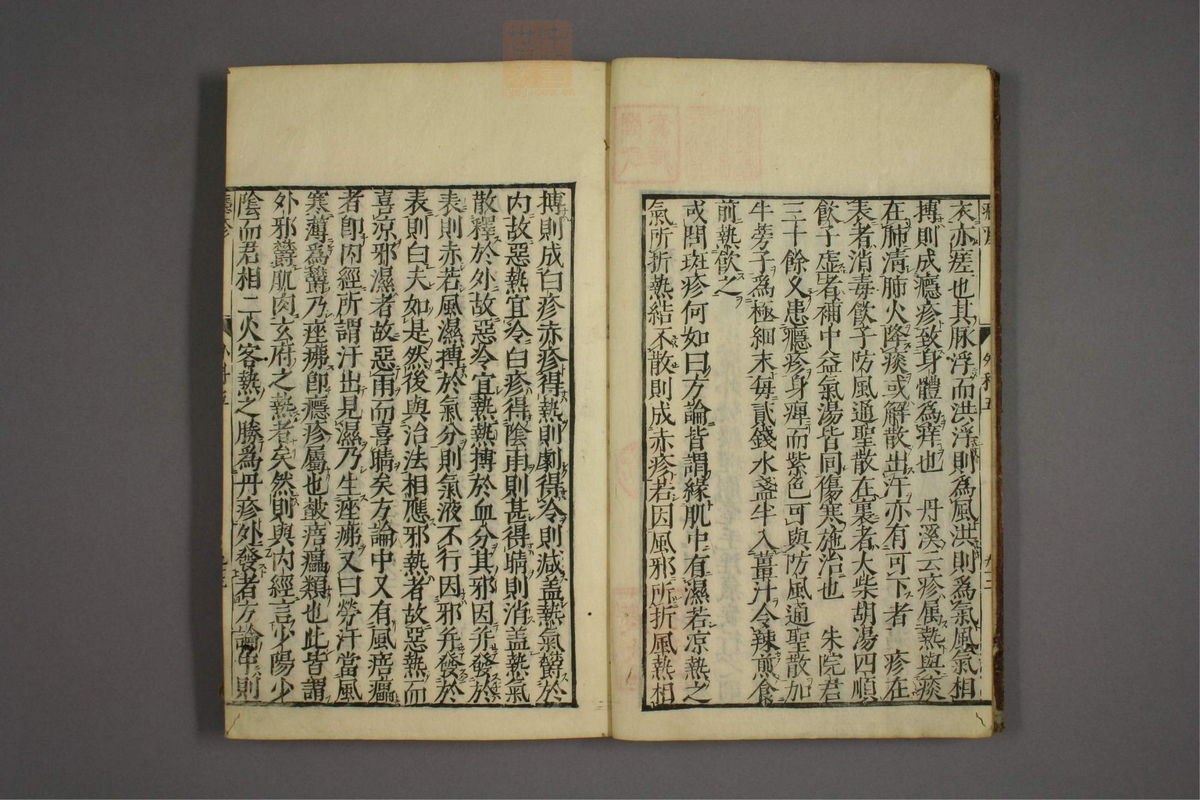 衣亦瘥也其脉浮而洪浮則爲風洪則爲氣風氣相
搏則成癮疹致身體爲痒也 丹溪云疹属熱與痰
在肺清肺火降痰或解散出汗亦有可下者 疹在
表者消毒飲子防風通聖散在裏者大柴胡湯四順
飲子虚者補中益氣湯皆同傷寒施治也 朱院君
三十餘久患癮疹身痺而紫色可與防風通聖散加
牛蒡子爲極細末每貳錢水盞半入薑汁令辣煎食
前熱飲之
或問斑疹何如曰方論皆謂緣肌中有濕若凉熱之
氣所折熱結不散則成赤疹若因風邪所折風熱相
搏則成白疹赤疹得熱則劇得冷則減盖熱氣鬱於
内故惡熱宜冷白疹得陰雨則甚得晴則消盖熱氣
散釋於外故惡冷宜熱熱搏於血分其邪因并發於
表則赤若風濕搏於氣分則氣液不行因邪并發於
表則白夫如是然後與治法相應邪熱者故惡熱而
喜凉邪濕者故惡雨而喜晴矣方論中又有風痦㿈
者卽内經所謂汗出見濕乃生痤疿又曰勞汗當風
寒薄爲皶鬱乃痤疿卽癮疹屬也皶痦㿈類也此皆謂
外邪鬱肌肉玄府之熱者矣然則與内經言少陽少
陰而君相二火客熱之勝爲丹疹外發者方論中則